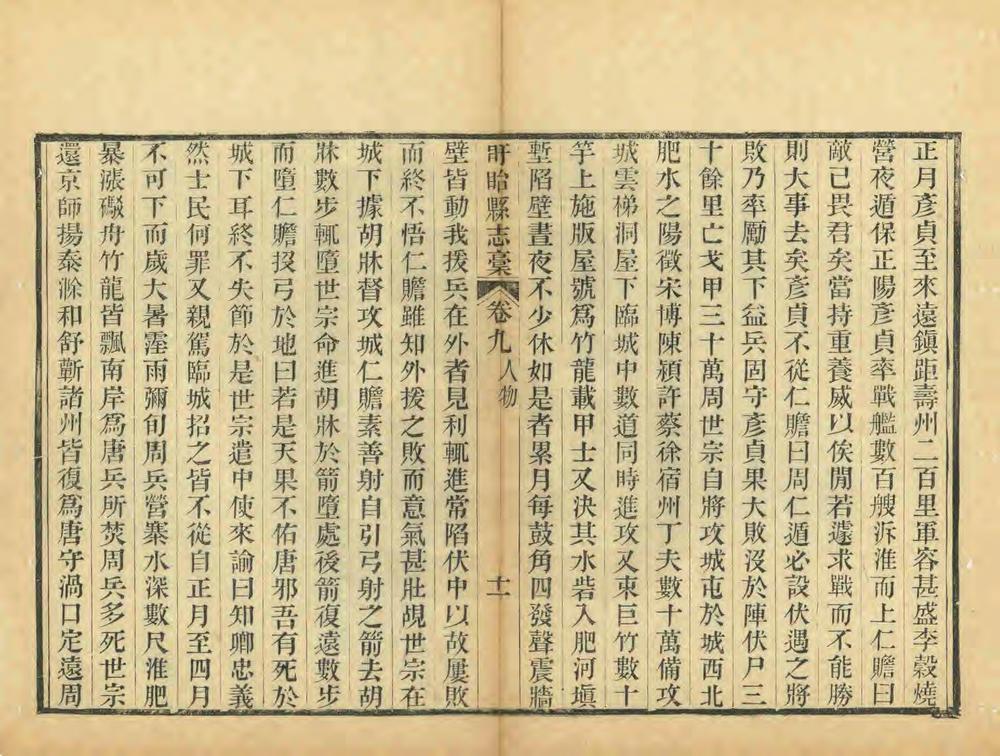 正月彥貞至來遠鎭距壽州二百里軍容甚盛李穀燒
營夜遁保正陽彥貞率戰艦數百艘泝淮而上仁贍曰
敵已畏君矣當持重養威以俟閒若遽求戰而不能勝
則大事去矣彥貞不從仁贍曰周仁遁必設伏遇之將
敗乃率勵其下益兵固守彥貞果大敗沒於陣伏尸三
十餘里亡戈甲三十萬周世宗自將攻城屯於城西北
肥水之陽徵宋博陳潁許蔡徐宿州丁夫數十萬備攻
城雲梯洞屋下臨城中數道同時進攻又束巨竹數十
竿上施版屋號爲竹龍載甲士又決其水砦入肥河塡
塹陷壁晝夜不少休如是者累月每鼓角四發聲震牆
盱眙縣志稾 卷九 人物 十一
壁皆動我援兵在外者見利輒進常陷伏中以故屢敗
而終不悟仁贍雖知外援之敗而意氣甚壯覘世宗在
城下據胡牀督攻城仁贍素善射自引弓射之箭去胡
牀數步輒墮世宗命進胡牀於箭墮處後箭復遠數步
而墮仁贍投弓於地曰若是天果不佑唐邪吾有死於
城下耳終不失節於是世宗遣中使來諭曰知卿忠義
然士民何罪又親駕臨城招之皆不從自正月至四月
不可下而歲大暑霪雨彌旬周兵營寨水深數尺淮肥
暴漲礮舟竹龍皆飄南岸爲唐兵所焚周兵多死世宗
還京師揚泰滁和舒蘄諸州皆復爲唐守渦口定遠周